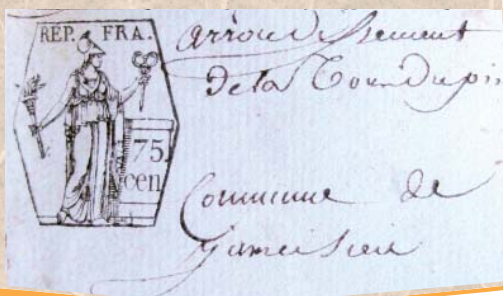 REP. FRA.
75.
cen
arrondissement
de la Tour Dupin
Commune de